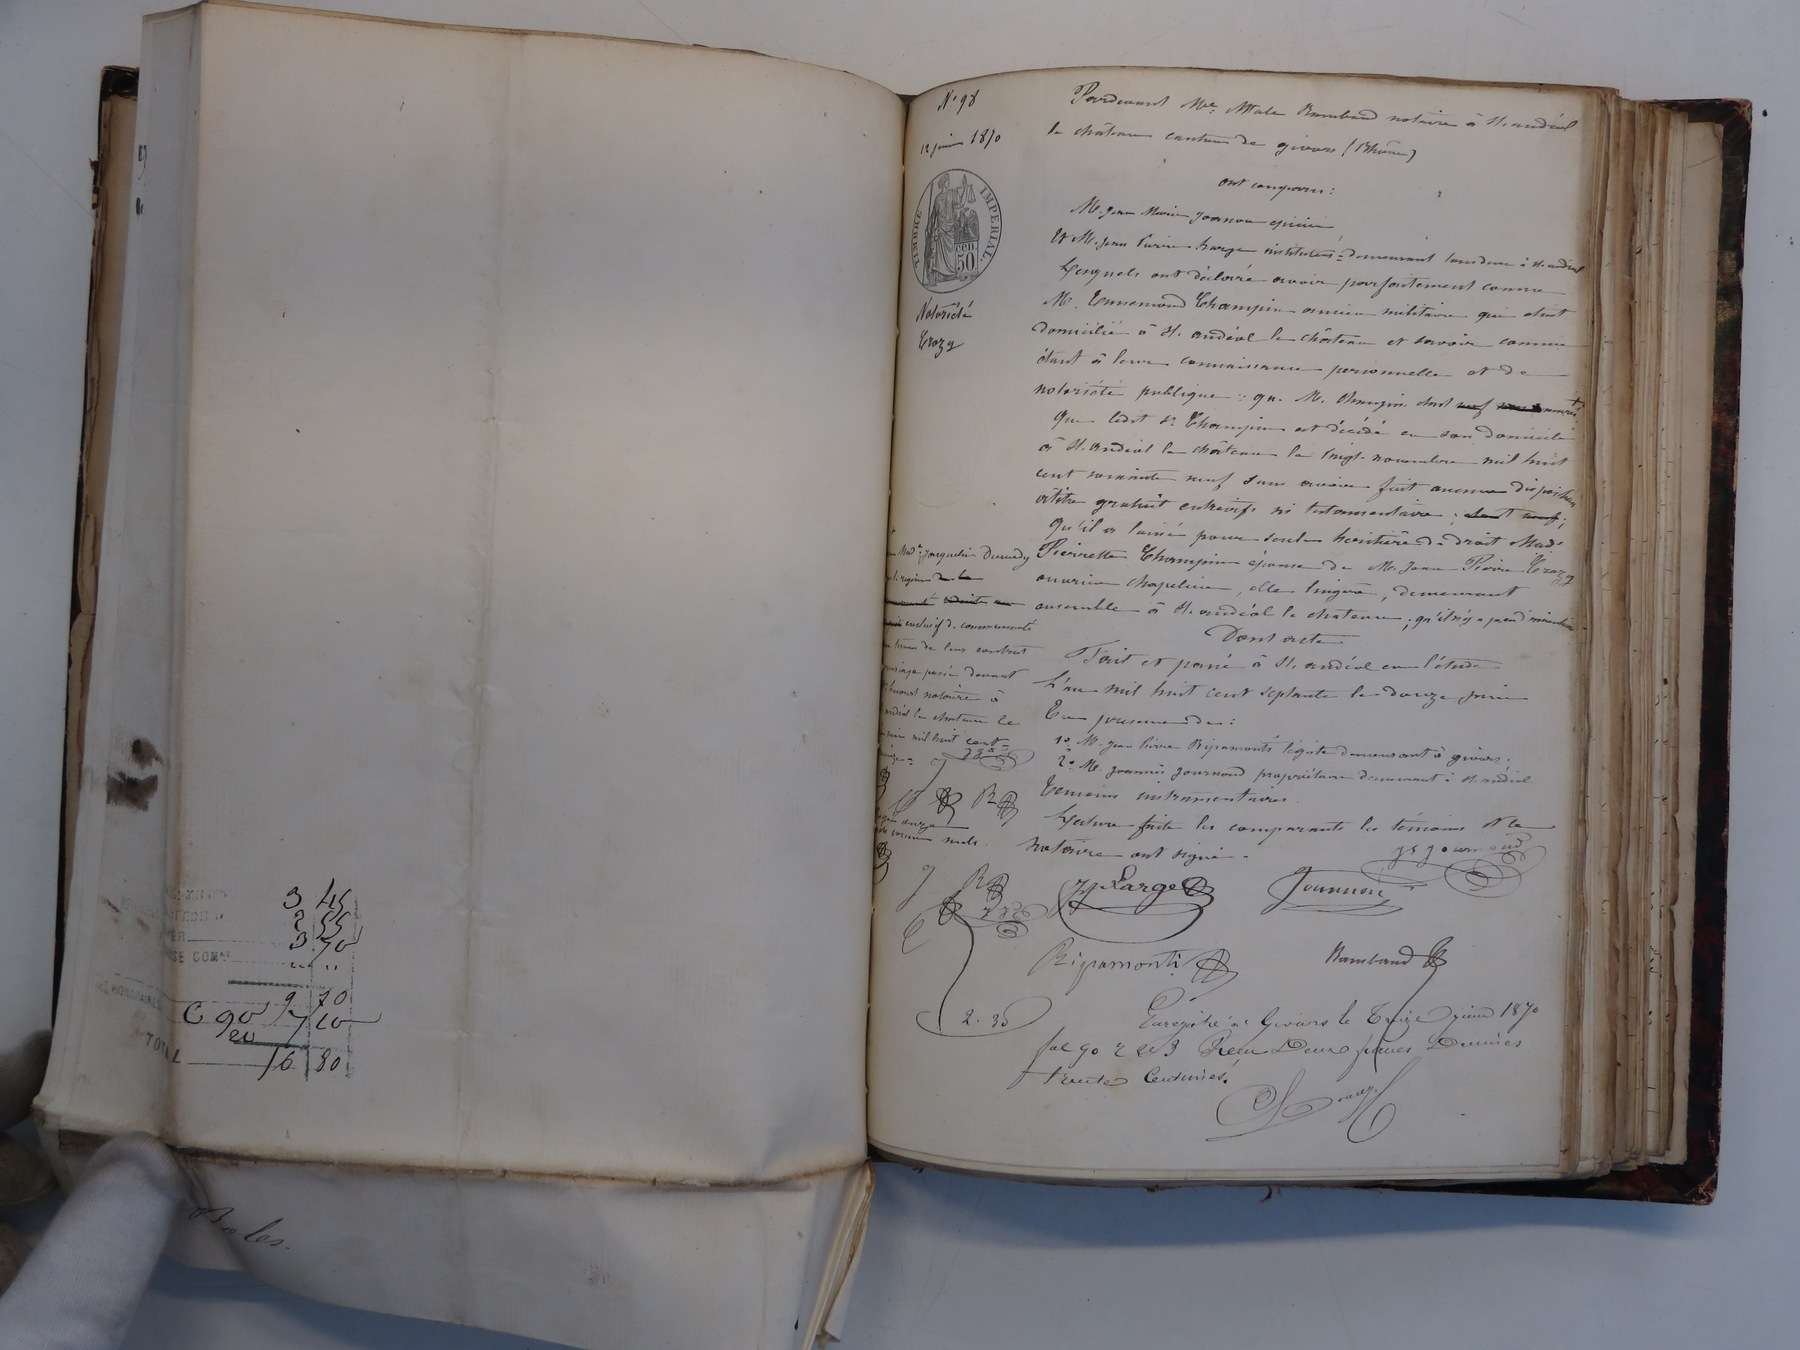 3 45
2 55
3 70
" "
9 70
C 90 7 10
20
TOTAL 16 80
N° 98
12 juin 1870
TIMBRE IMPERIAL.
50 cen.
Notoriété
Crozy
Pardevant Me Rambaud notaire à St. andéol
le château canton de givors (Rhône)
ont comparu:
M. Jean Marie Journou épicier
Et M. Jean Pierre Large instituteur demeurant tous deux à St andéol
Lesquels ont déclaré avoir parfaitement connu
M. Ennemond Champin ancien militaire qui était
domicilié à St. andéol le château et savoir comme
étant à leur connaissance personnelle et de
notoriété publique: que M. Champin était marié
Que ledit Sr Champin est décédé en son domicile
à St. andéol le château le vingt novembre mil huit
cent soixante neuf sans avoir fait aucune disposition
à titre gratuit entrevifs ni testamentaire;
Qu'il a laissé pour seule héritière de droit Made
Pierrette Champin épouse de M. Jean Pierre Crozy
ouvrier chapelier, elle lingère, demeurant
ensemble à St. andéol le château; qu'il n'y a pas d'inventaire
Dont acte
Fait et passé à St. andéol en l'étude
L'an mil huit cent septante le douze juin
En presence de:
1° M. Jean Pierre Ripamonti légiste demeurant à givors;
2° M. Joannès Journoud propriétaire demeurant à St andéol
Temoins instrumentaires.
Lecture faite les comparants les témoins et le
notaire ont signé.
Made Jacqueline
régime de la
exclusif de communauté
termes de leur contrat
mariage passé devant
notaire à
andéol le château le
mil huit cent
nuls.
Js Journoud
JP Large
Journou
Ripamonti
Rambaud
2.30
Enregistré à Givors le Treize juin 1870
fol 90 Recu Deux francs Decimes
trente Centimes.